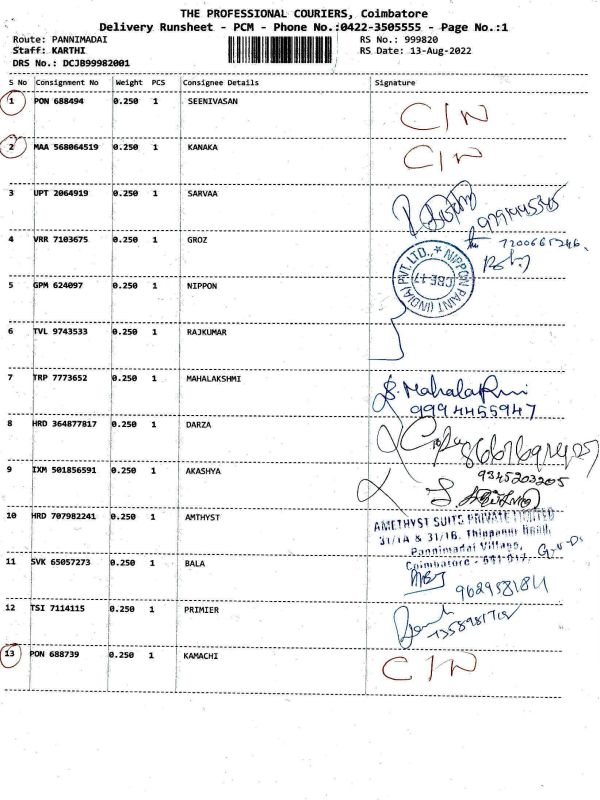 THE PROFESSIONAL COURIERS, Coimbatore
Delivery Runsheet - PCM - Phone No.:0422-3505555 - Page No.:1
Route: PANNIMADAI RS No.: 999820
Staff: KARTHI RS Date: 13-Aug-2022
DRS No.: DCJB99982001
S No Consignment No Weight PCS Consignee Details Signature
1 PON 688494 0.250 1 SEENIVASAN C/N
2 MAA 568064519 0.250 1 KANAKA C/N
3 UPT 2064919 0.250 1 SARVAA
4 VRR 7103675 0.250 1 GROZ
5 GPM 624097 0.250 1 NIPPON NIPPON PAINT (INDIA) PVT. LTD., * CBE-17
6 TVL 9743533 0.250 1 RAJKUMAR
7 TRP 7773652 0.250 1 MAHALAKSHMI
9994455947
8 HRD 364877817 0.250 1 DARZA
9 IXM 501856591 0.250 1 AKASHYA 9345203205
10 HRD 707982241 0.250 1 AMTHYST AMETHYST SUITS PRIVATE LIMITED
31/1A & 31/1B, Thippanur Road,
Pannimadai Village,
Coimbatore - 641 017.
11 SVK 65057273 0.250 1 BALA
12 TSI 7114115 0.250 1 PRIMIER
13 PON 688739 0.250 1 KAMACHI C/N